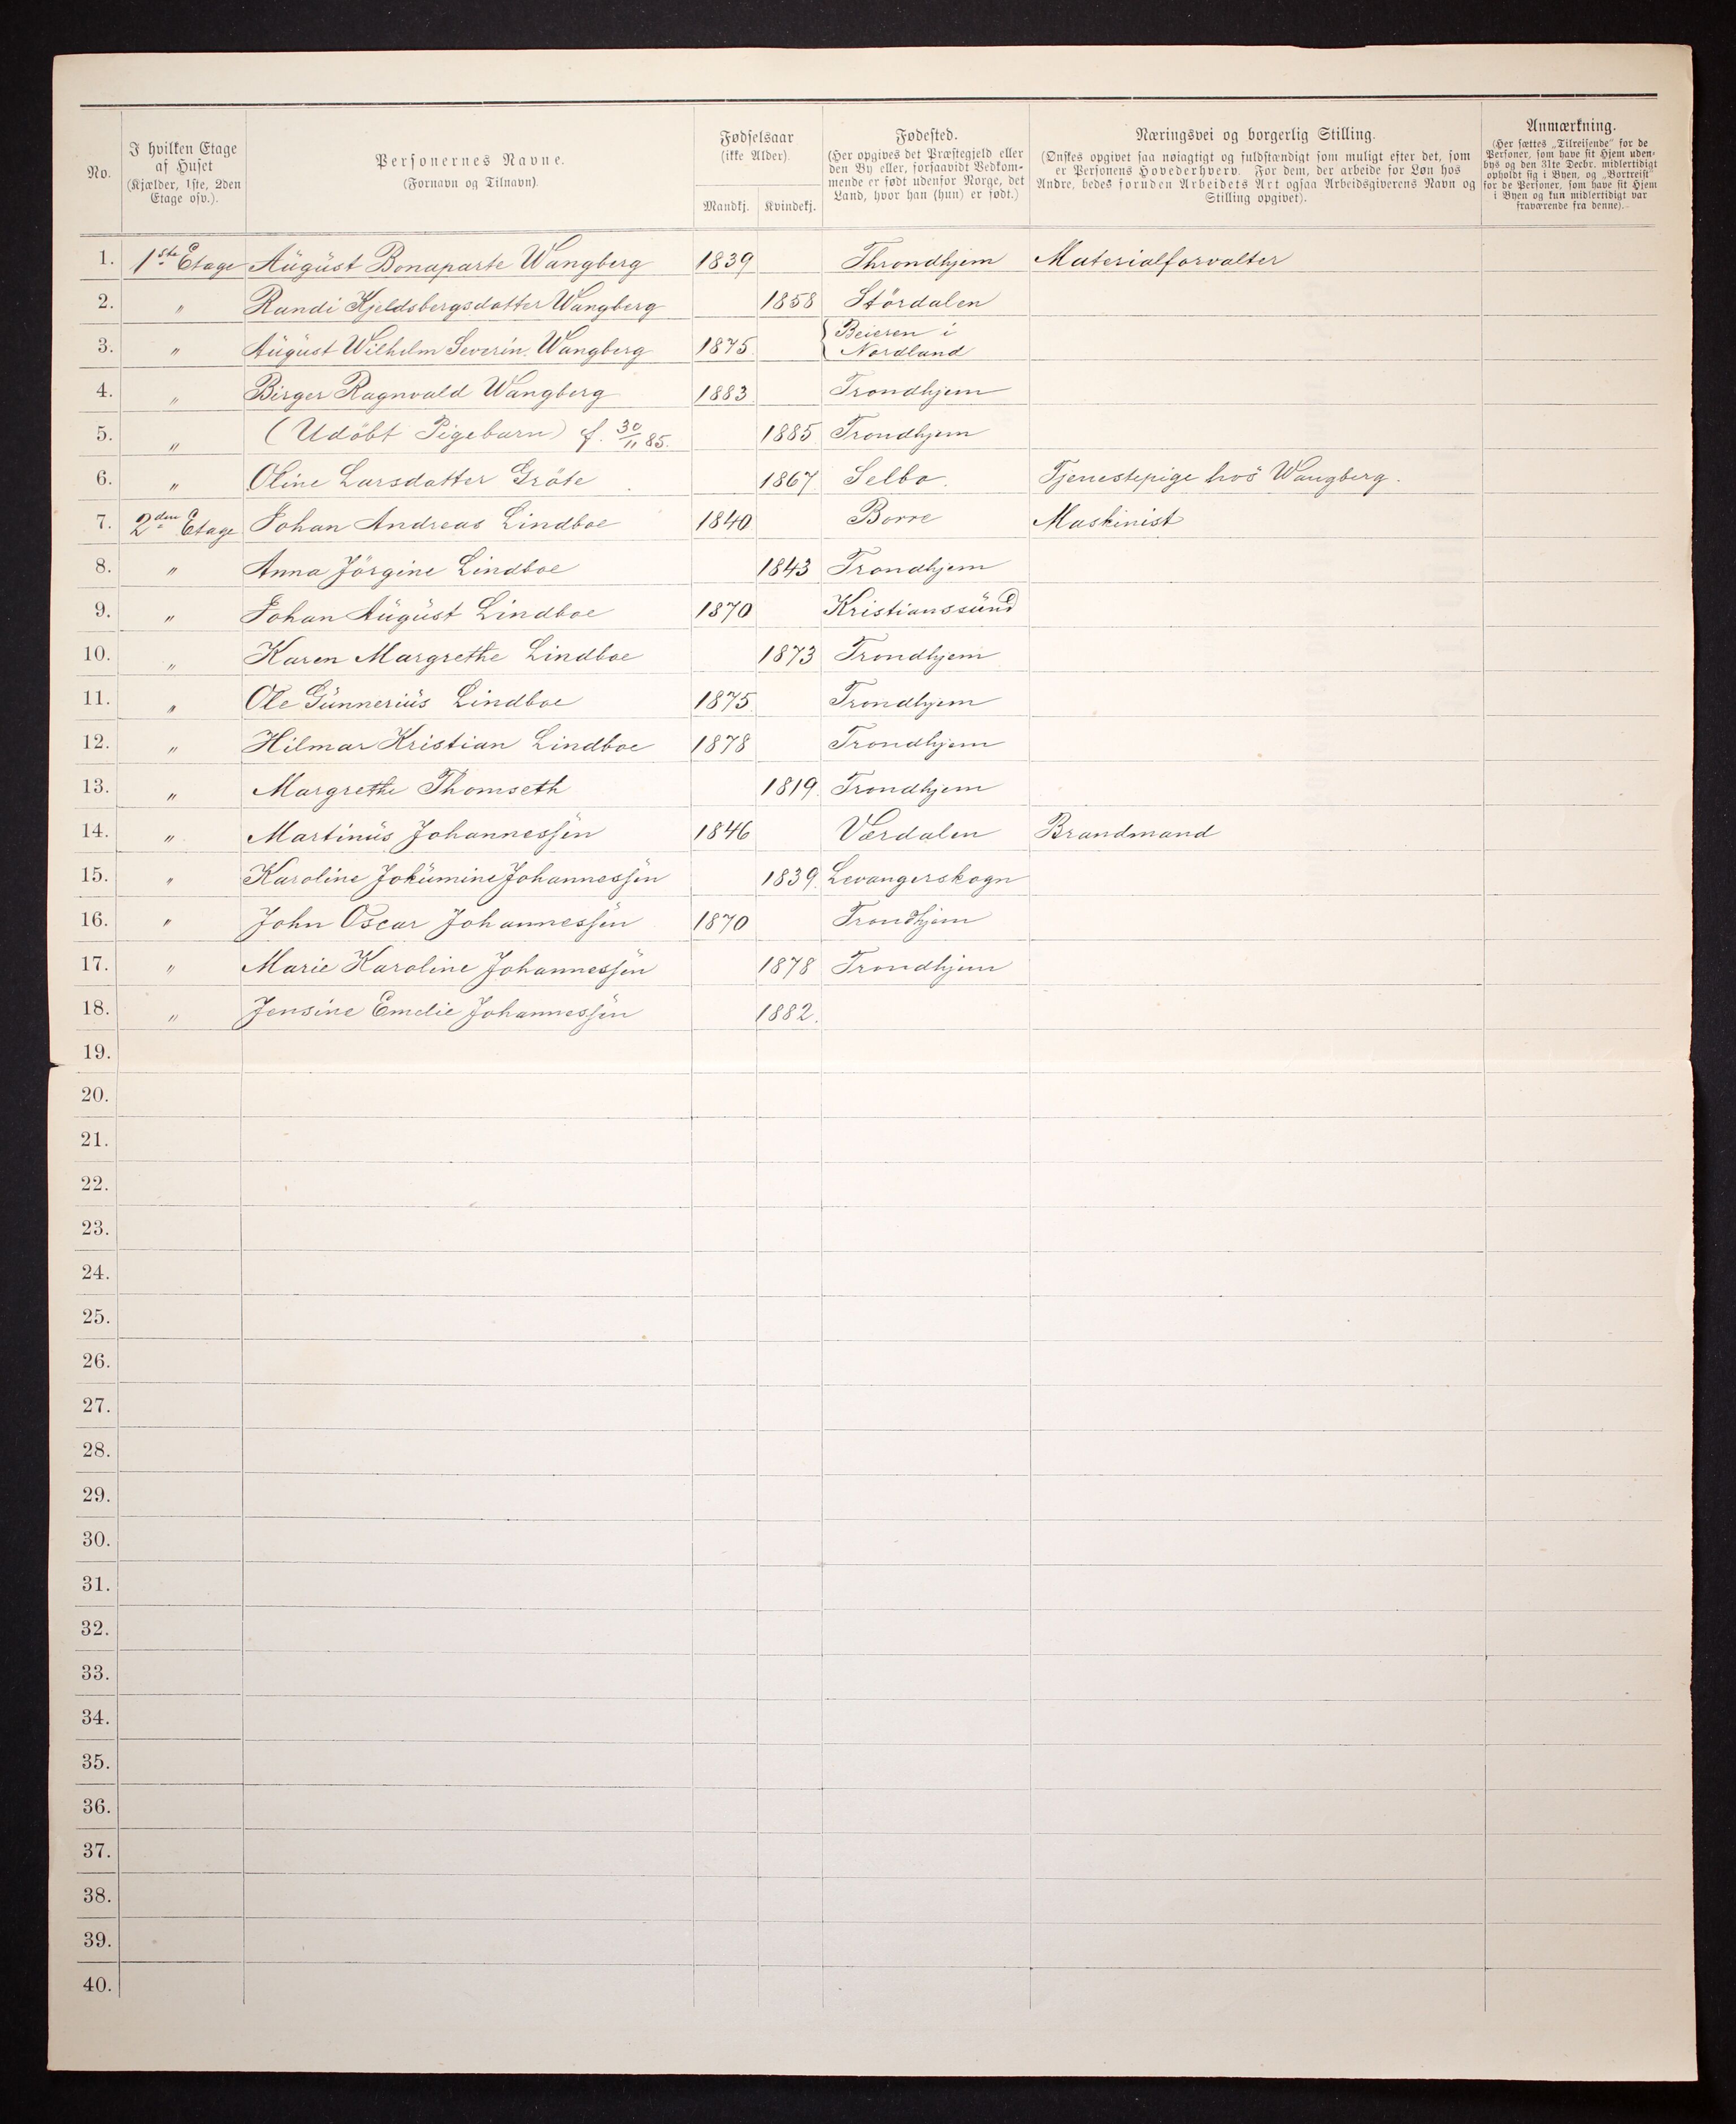 No.
I hvilken Etage
af Huset
(Kjælder, 1ste, 2den
Etage osv.).
Personernes Navne.
(Fornavn og Tilnavn).
Fødselsaar
(ikke Alder).
Mandkj. Kvindekj.
Fødested.
(Her opgives det Præstegjeld eller
den By eller, forsaavidt Vedkom-
mende er født udenfor Norge, det
Land, hvor han (hun) er født.)
Næringsvei og borgerlig Stilling.
(Ønskes opgivet saa nøiagtigt og fuldstændigt som muligt efter det, som
er Personens Hovederhverv. For dem, der arbeide for Løn hos
Andre, bedes foruden Arbeidets Art ogsaa Arbeidsgiverens Navn og
Stilling opgivet).
Anmærkning.
(Her sættes „Tilreisende" for de
Personer, som have sit Hjem uden-
bys og den 31te Decbr. midlertidigt
opholdt sig i Byen, og „Bortreist"
for de Personer, som have sit Hjem
i Byen og kun midlertidigt var
fraværende fra denne).
1. 1ste Etage August Bonaparte Wangberg 1839 Throndhjem Materialforvalter
2. " Randi Kjeldsbergsdatter Wangberg 1858 Stördalen
3. " August Wilhelm Severin Wangberg 1875 { Beieren i
Nordland
4. " Birger Ragnvald Wangberg 1883 Trondhjem
5. " (Udöbt Pigebarn) f. 30/11 85. 1885 Trondhjem
6. " Oline Larsdatter Gröte 1867 Selbo. Tjenestepige hos Wangberg.
7. 2den Etage Johan Andreas Lindboe 1840 Borre Maskinist
8. " Anna Jörgine Lindboe 1843 Trondhjem
9. " Johan August Lindboe 1870 Kristianssund
10. " Karen Margrethe Lindboe 1873 Trondhjem
11. " Ole Gunnerius Lindboe 1875 Trondhjem
12. " Hilmar Kristian Lindboe 1878 Trondhjem
13. " Margrethe Thomseth 1819. Trondhjem
14. " Martinus Johannessen 1846 Værdalen Brandmand
15. " Karoline Jokumine Johannessen 1839. Levangerskogn
16. " John Oscar Johannessen 1870 Trondhjem
17. " Marie Karoline Johannessen 1878 Trondhjem
18. " Jensine Emelie Johannessen 1882.
19.
20.
21.
22.
23.
24.
25.
26.
27.
28.
29.
30.
31.
32.
33.
34.
35.
36.
37.
38.
39.
40.